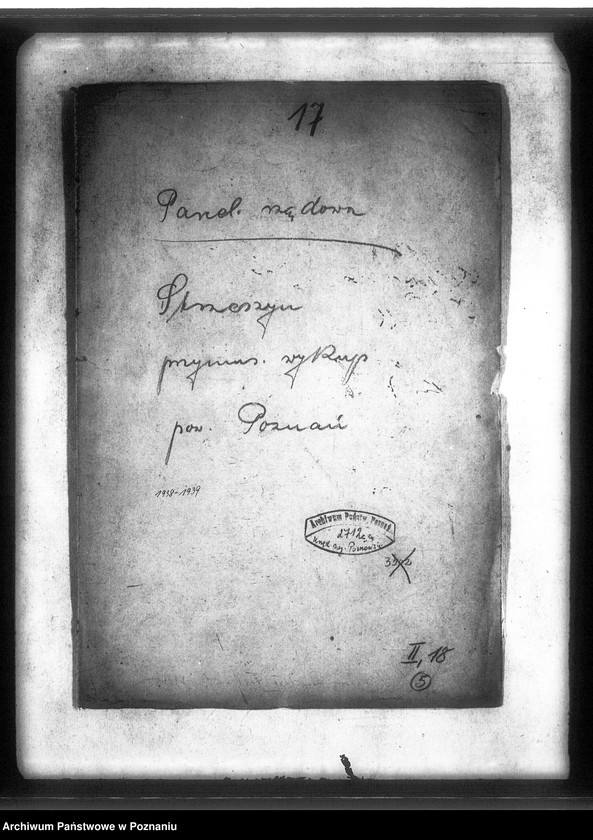 17
Parcel. rządowa
Strzeszyn
przymus. wykup
pow. Poznań
1938-1939
Archiwum Państw. Poznań
2712
Urząd Woj. Poznański
II, 18
5
Archiwum Państwowe w Poznaniu